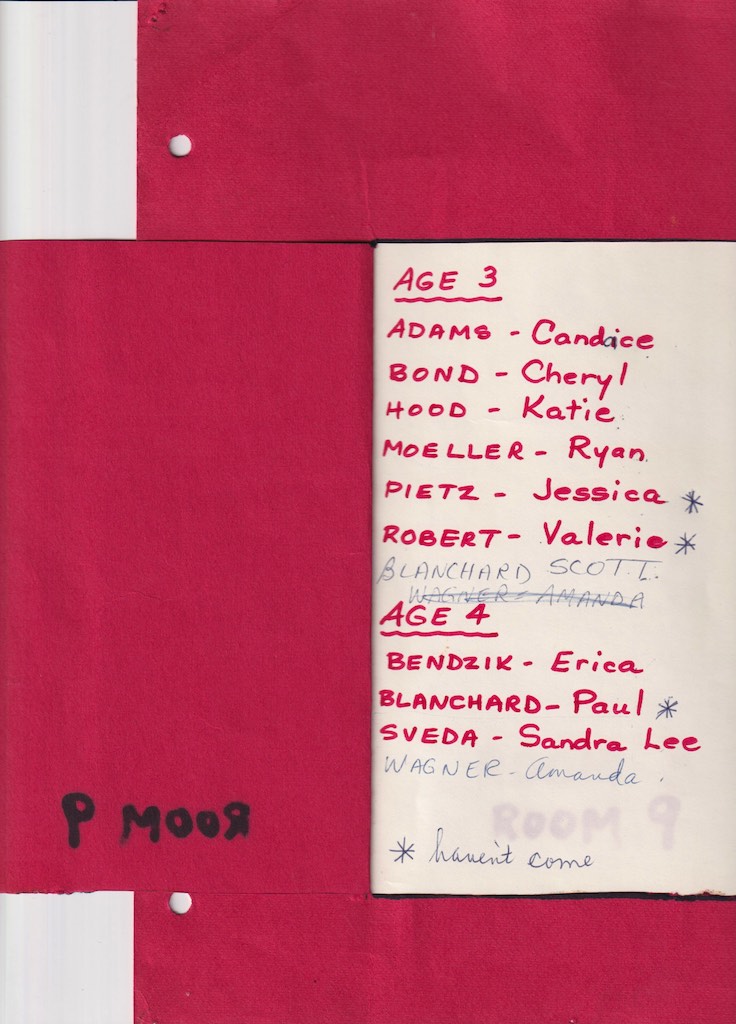 AGE 3
ADAMS - Candaice
BOND - Cheryl
HOOD - Katie
MOELLER - Ryan
PIETZ - Jessica *
ROBERT - Valerie *
BLANCHARD SCOTT
WAGNER - AMANDA
AGE 4
BENDZIK - Erica
BLANCHARD - Paul *
SVEDA - Sandra Lee
WAGNER - Amanda.
ROOM 9
ROOM 9
* haven't come